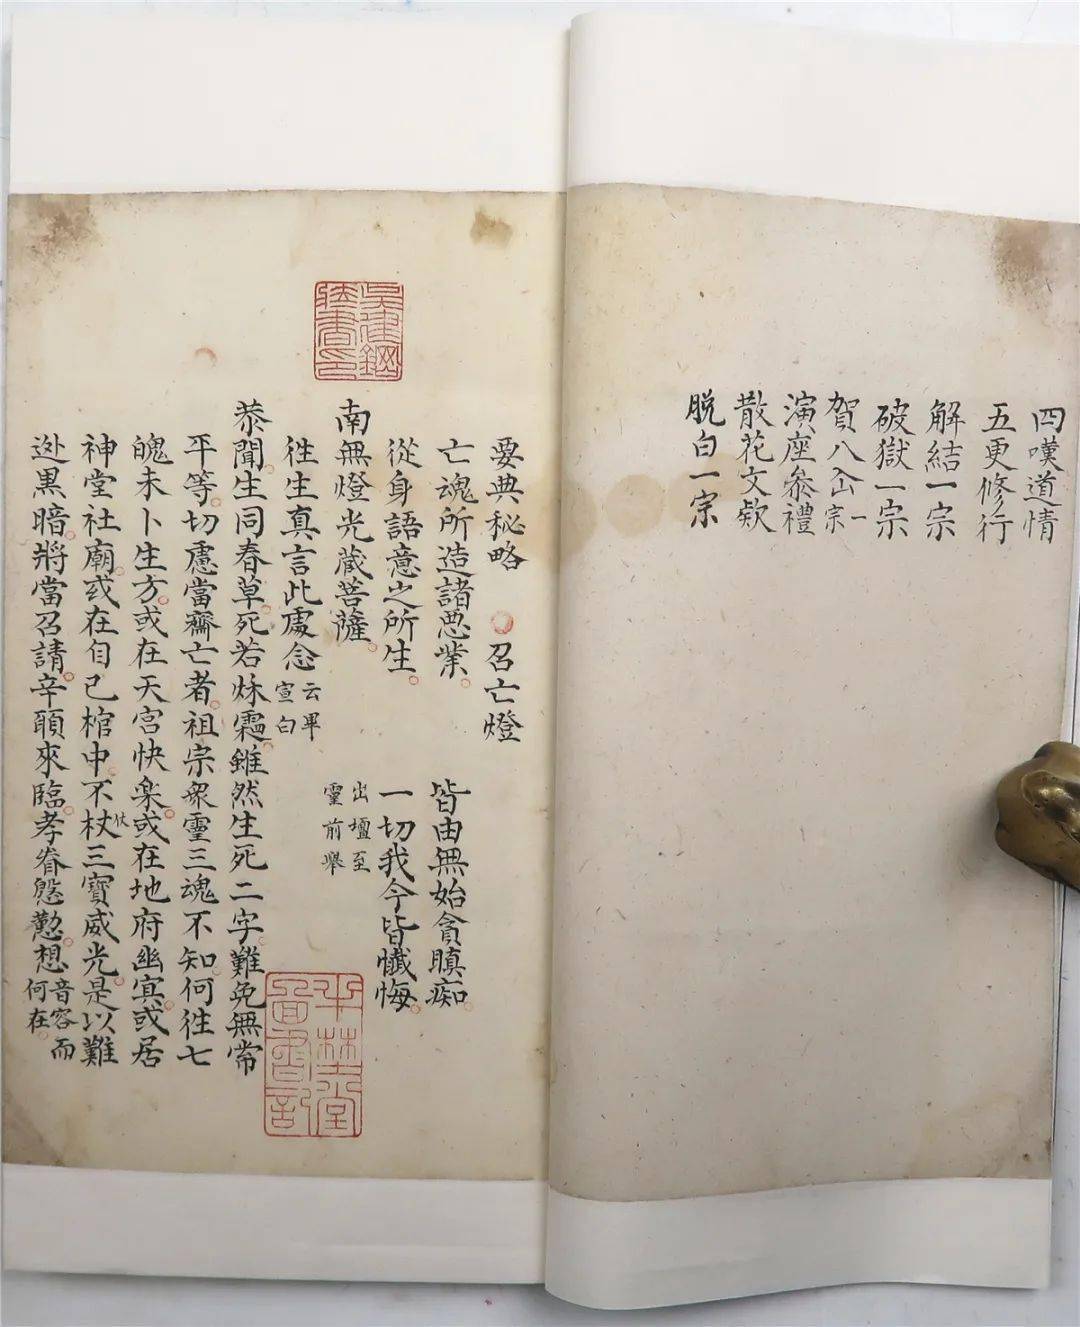 四嘆道情
五更修行
解結一宗
破獄一宗
賀八仚一宗
演座叅禮
散花文欵
脱白一宗
要典秘略 召亡燈
亡魂所造諸恶業 皆由無始貪瞋痴
從身語意之所生 一切我今皆懺悔
南無燈光藏菩薩 出壇至靈前舉
徃生真言此處念 云畢宣白
恭聞生同春草死若秌霜雖然生死二字難免無常
平等切慮當齋亡者祖宗衆靈三魂不知何徃七
魄未卜生方或在天宫快楽或在地府幽冥或居
神堂社廟或在自己棺中不杖仗三寶威光是以難
迯黑暗將當召請辛頋來臨孝眷慇懃想音容而何在
吳建鋼藏書印
半埜堂圖書記